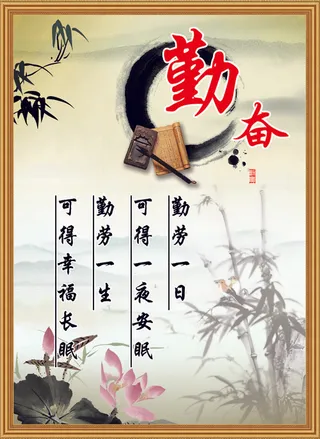 勤奋
勤劳一日
可得一夜安眠
勤劳一生
可得幸福长眠